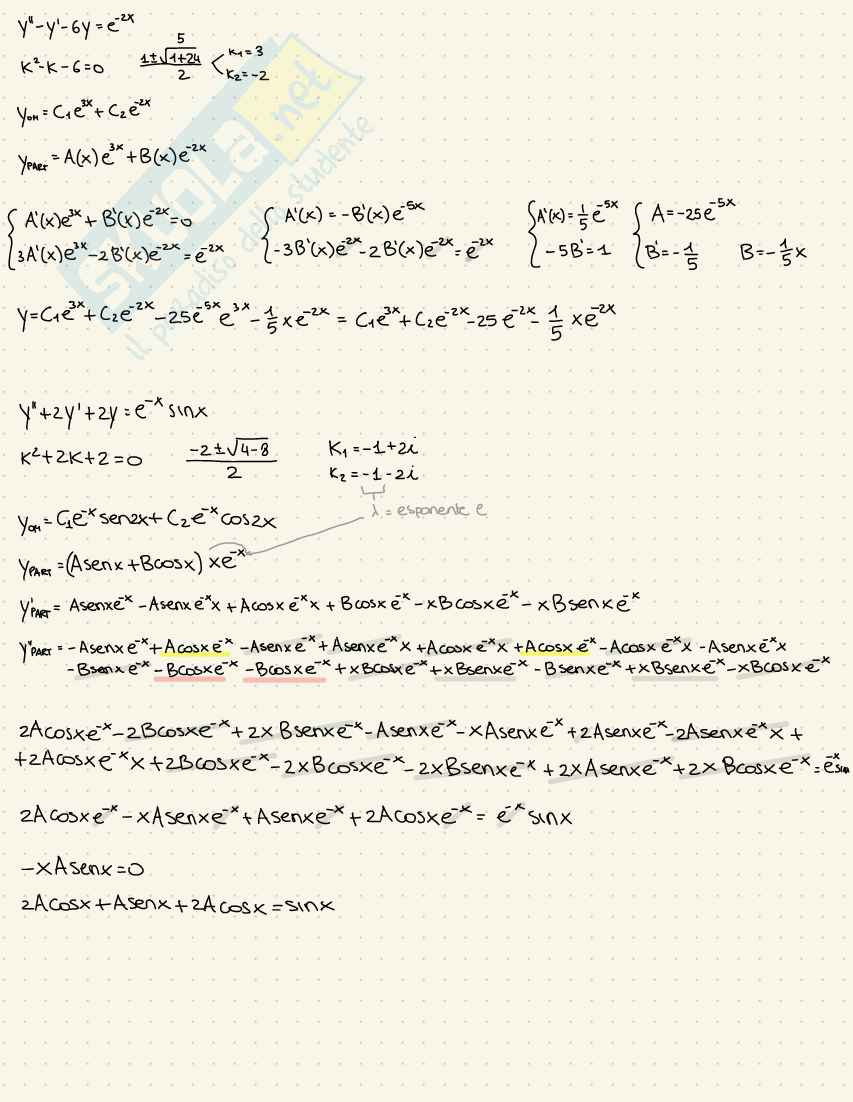 y''-y'-6y=e^-2x
k²-k-6=0 (1±√(1+24))/2 5 k₁=3 k₂=-2
y_OM=C₁e^3x+C₂e^-2x
y_PART=A(x)e^3x+B(x)e^-2x
{A'(x)e^3x+B'(x)e^-2x=0 {A'(x)=-B'(x)e^-5x {A'(x)=1/5 e^-5x {A=-25e^-5x
3A'(x)e^3x-2B'(x)e^-2x=e^-2x -3B'(x)e^-2x-2B'(x)e^-2x=e^-2x -5B'=1 B'=-1/5 B=-1/5 x
y=C₁e^3x+C₂e^-2x-25e^-5x e^3x-1/5 xe^-2x = C₁e^3x+C₂e^-2x-25e^-2x-1/5 xe^-2x
y''+2y'+2y=e^-x sinx
k²+2k+2=0 (-2±√(4-8))/2 k₁=-1+2i
k₂=-1-2i
λ=esponente e
y_OM=C₁e^-x sen2x+C₂e^-x cos2x
y_PART=(Asenx+Bcosx)xe^-x
y'_PART=Asenxe^-x-Asenxe^-x x+Acosxe^-x x+Bcosxe^-x-xBcosxe^-x-xBsenxe^-x
y''_PART=-Asenxe^-x+Acosxe^-x-Asenxe^-x+Asenxe^-x x+Acosxe^-x x+Acosxe^-x-Acosxe^-x x-Asenxe^-x x
-Bsenxe^-x-Bcosxe^-x-Bcosxe^-x+xBcosxe^-x+xBsenxe^-x-Bsenxe^-x+xBsenxe^-x-xBcosxe^-x
2Acosxe^-x-2Bcosxe^-x+2xBsenxe^-x-Asenxe^-x-xAsenxe^-x+2Asenxe^-x-2Asenxe^-x x+
+2Acosxe^-x x+2Bcosxe^-x-2xBcosxe^-x-2xBsenxe^-x+2xAsenxe^-x+2xBcosxe^-x=e^-x sin
2Acosxe^-x-xAsenxe^-x+Asenxe^-x+2Acosxe^-x=e^-x sinx
-xAsenx=0
2Acosx+Asenx+2Acosx=sinx
SKUOLA.net
il paradiso dello studente